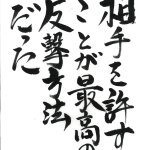 相手を許す
ことが最高の
反撃方法
だった